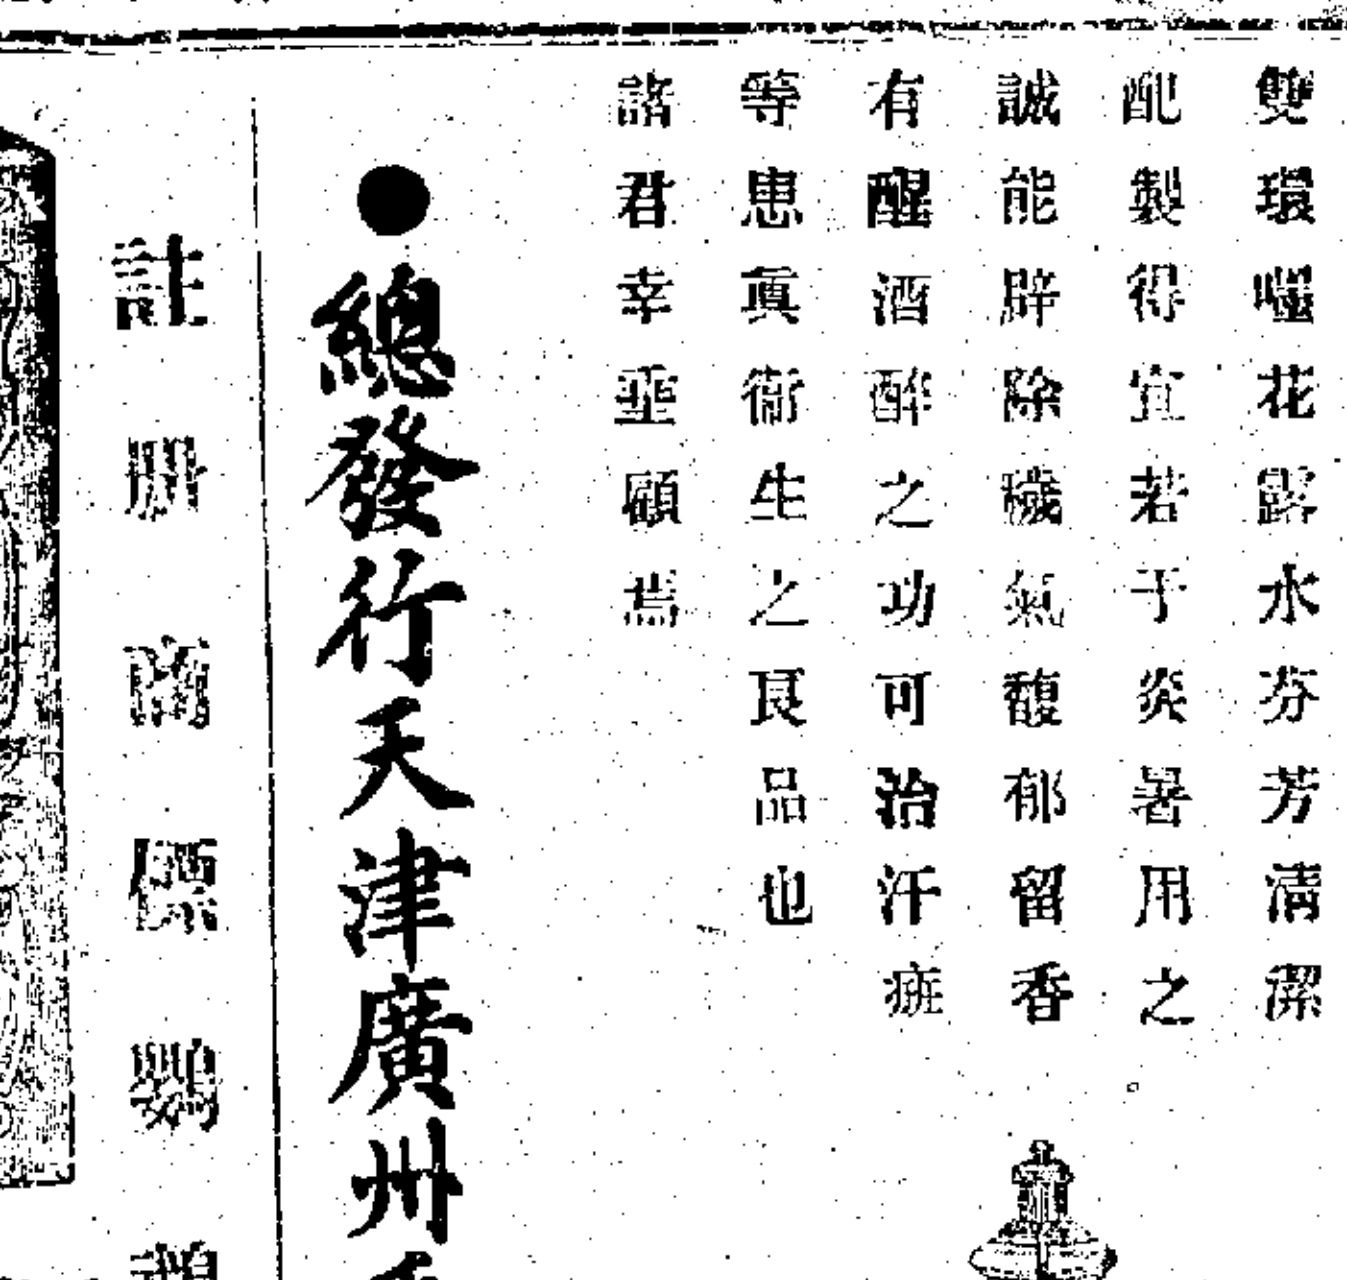 雙環嘥花露水芬芳清潔
配製得宜若于炎暑用之
誠能辟除穢氣馥郁留香
有醒酒醉之功可治汗斑
等患眞衛生之良品也
諸君幸垂顧焉
●總發行天津廣州
註册商標鸚